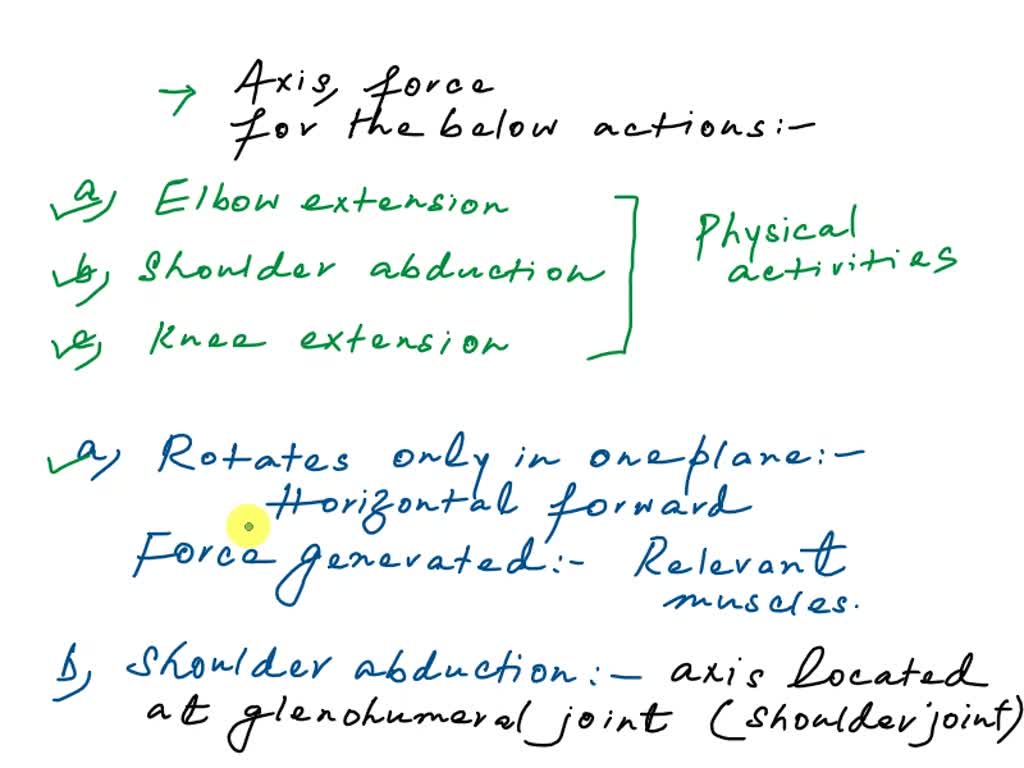 → Axis, force
for the below actions:-
a) Elbow extension
b) Shoulder abduction
c) Knee extension
Physical
activities
a) Rotates only in one plane:-
Horizontal forward
Force generated:- Relevant
muscles.
b) Shoulder abduction:- axis located
at glenohumeral joint (shoulder joint)